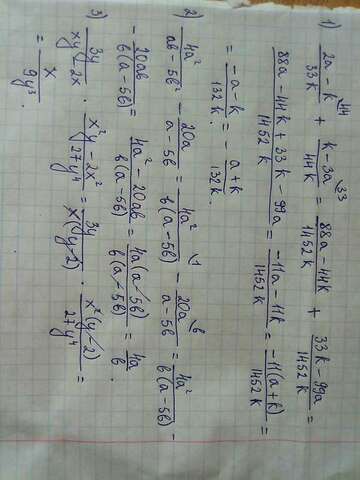 1) (2a - k)/33k ^44 + (k - 3a)/44k ^33 = (88a - 44k)/1452k + (33k - 99a)/1452k =
(88a - 44k + 33k - 99a)/1452k = (-11a - 11k)/1452k = (-11(a + k))/1452k =
= (-a - k)/132k = - (a + k)/132k .
2) 4a²/(ab - 5b²) - 20a/(a - 5b) = 4a²/(b(a - 5b)) ^1 - 20a/(a - 5b) ^b = 4a²/(b(a - 5b)) -
- 20ab/(b(a - 5b)) = (4a² - 20ab)/(b(a - 5b)) = (4a(a - 5b))/(b(a - 5b)) = 4a/b .
3) 3y/(xy - 2x) · (x²y - 2x²)/27y⁴ = 3y/(x(y - 2)) · (x²(y - 2))/27y⁴ =
= x/9y³ .